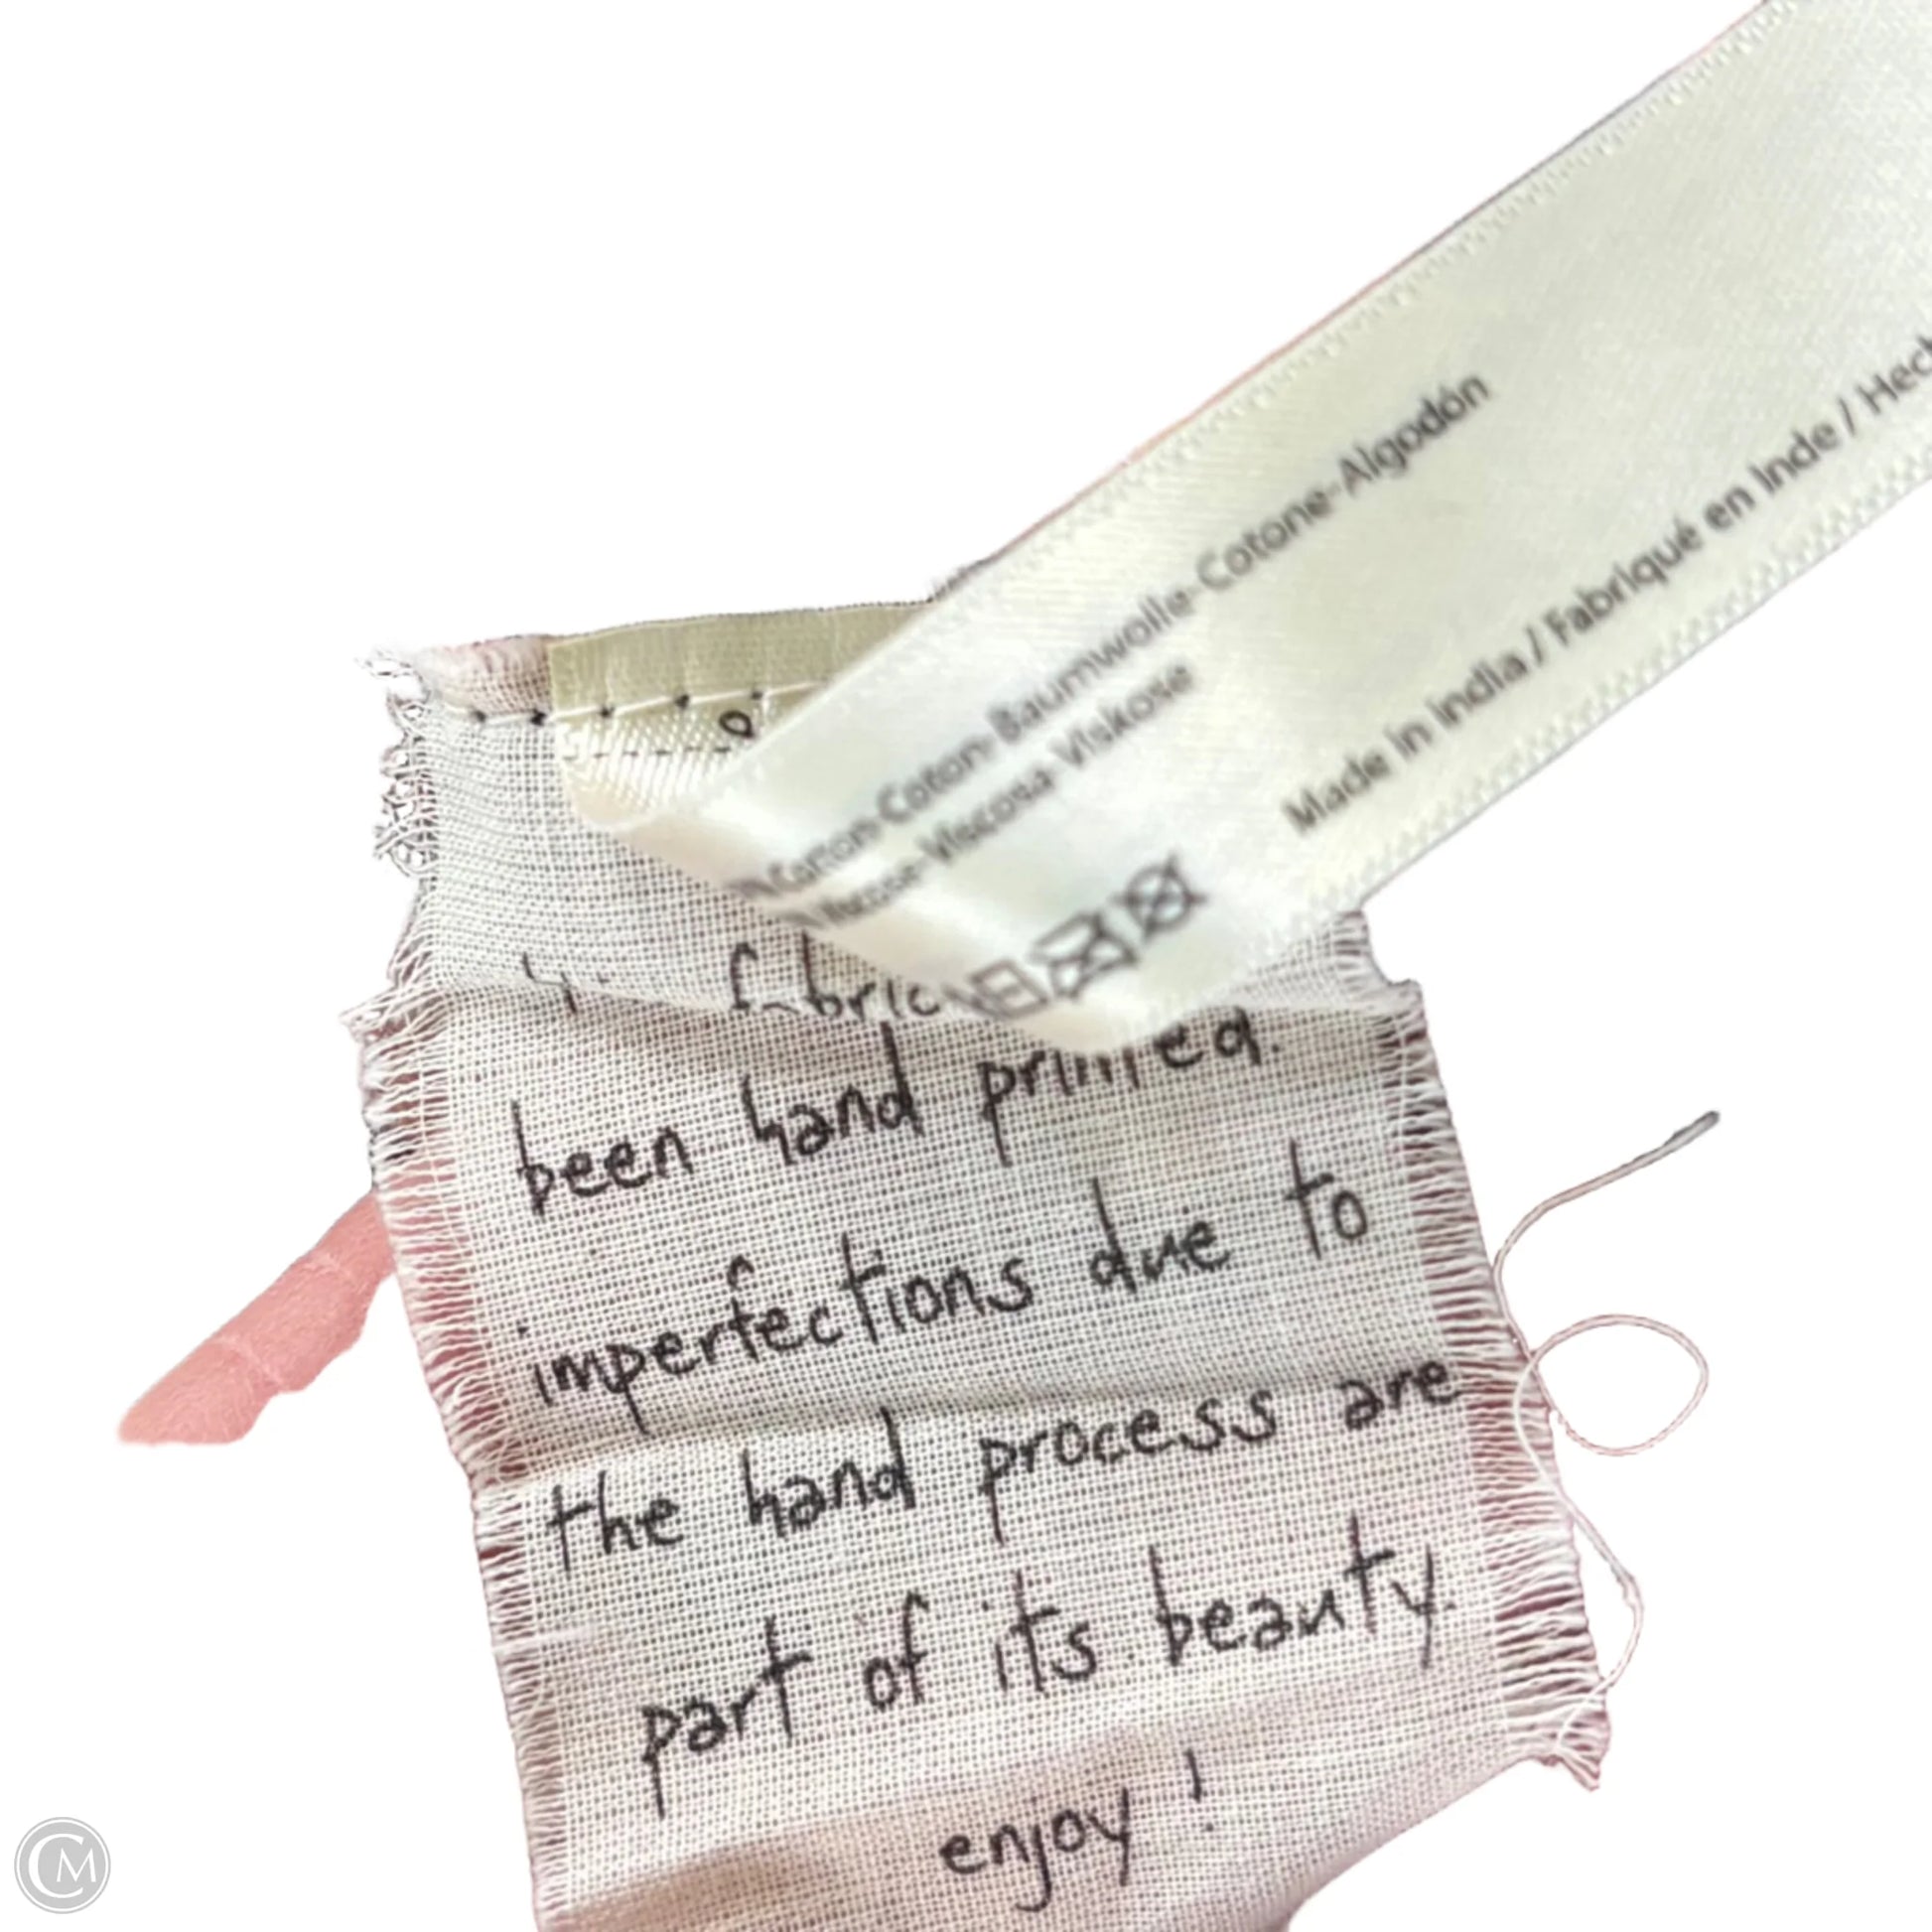 Cotton-Coton-Baumwolle-Cotone-Algodón
Viscose-Viscosa-Viskose
Made in india / Fabriqué en Inde / Hech
fabric
been hand printed.
imperfections due to
the hand process are
part of its beauty.
enjoy!
CM